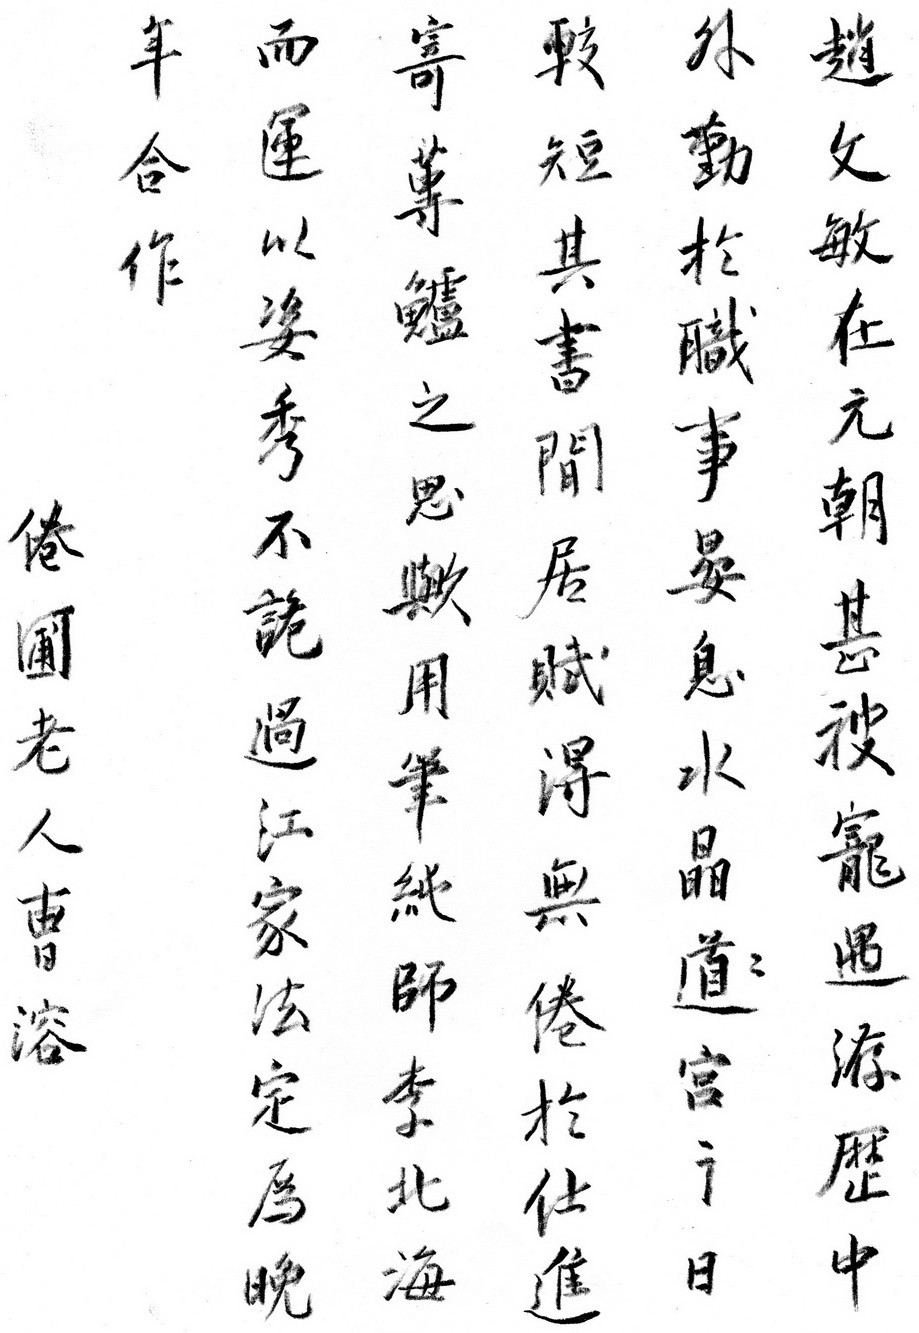 趙文敏在元朝甚被寵遇游歷中
外勤於職事晏息水晶道〻宮之日
較短其書閒居賦得無倦於仕進
寄蓴鱸之思歟用筆純師李北海
而運以姿秀不詭過江家法定為晚
年合作
倦圃老人曹溶